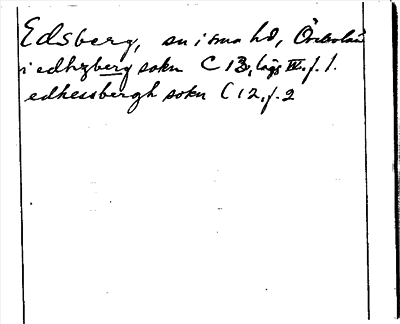 Edsberg, sn i sma hd, Örebro län
i edhzberg sokn C 13, lags IV. f. 1.
edhessbergh sokn C 12. f. 2